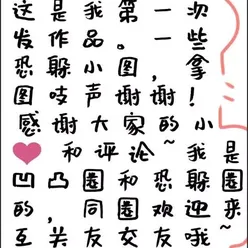 这是我第一次
发作品。一些
恐躲小图，拿
图吱声谢谢！
感谢大家的小
❤和评论~我是
凹凸圈和恐躲圈
的，同圈欢迎来
互关友交友哦~